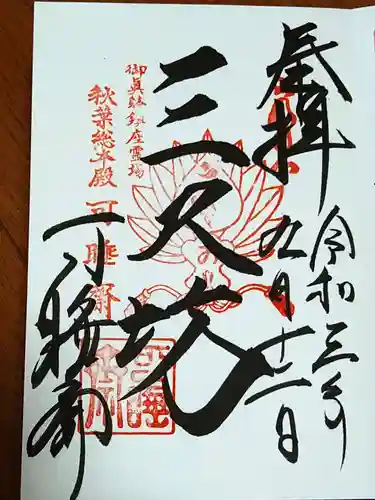 奉拝
令和三年
九月十二日
三尺坊
御真躰鎮座霊場
秋葉総本殿 可睡斎
可睡斎